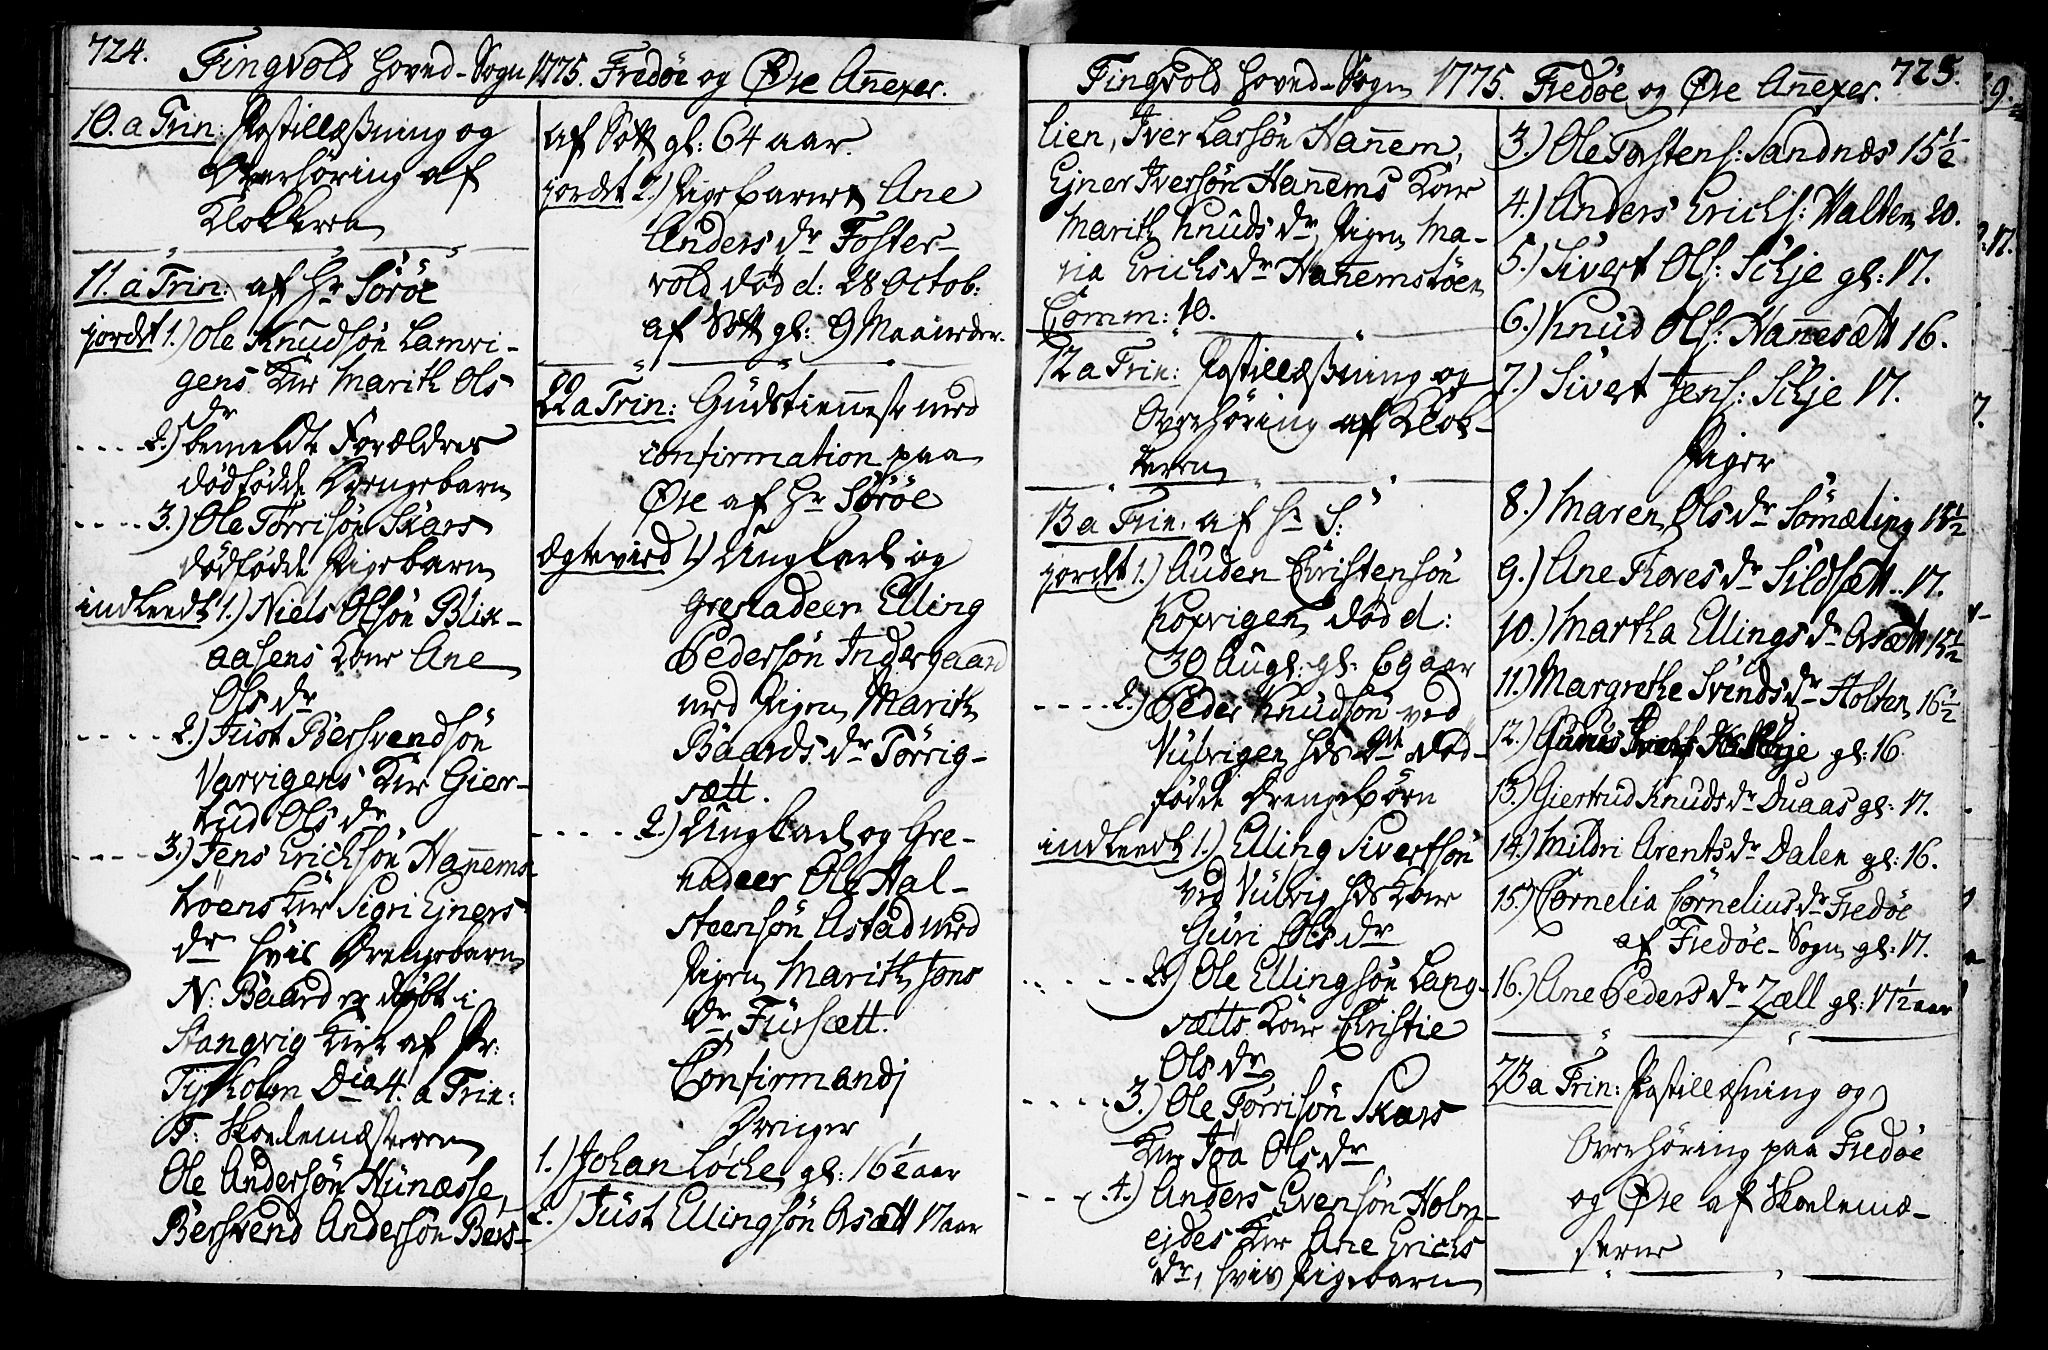 724. Tingvold Hoved-Sogn 1775. Fredøe og Øre Anexer.
10. a Trin: Postillæsning og
Overhøring af
Klokkeren
11. a Trin: af Hr Sörøe
jordet 1.) Ole Knudsön Lamvi-
gens Kone Marith Ols
dr
2.) bemeldte Forældres
dödfödde Drengebarn
3.) Ole Törrisön Skars
dödfödde Pigebarn
indleedt 1.) Niels Olsön Blik-
aasens Kone Ane
Ols dr
2.) Just Bersvendsön
Varvigens Kone Gier-
trud Ols dr
3.) Jens Erichsön Hanems-
töens Kone Sigri Ejners
dr hvis Drengebarn
N: Baard er döbt i
Stangvig Kirke af Pr:
Tyrholm Dca 4. a Trin:
F: Skoelemesteren
Ole Andersön Hunæsse,
Bersvend Andersön Bers-
af Sott gl: 64 aar.
jordet 2.) Pigebarnet Ane
Anders dr Foster-
vold död d: 28 Octob:
af Sott gl: 9 Maaneder.
22 a Trin: Gudstienneste med
confirmation paa
Øre af Hr Söröe
Ægtevied 1.) Ungkarl og
Grenadeer Elling
Pedersön Indergaard
med Pigen Marith
Baards dr Törrig-
sætt.
2.) Ungkarl og Gre-
nadeer Ole Hal-
steensön Astad med
Pigen Marith Jons
dr Fursætt.
Confirmandj
Drenger
1.) Johan Löche gl: 16 1/2 aar
2.) Just Ellingsön Aasætt 17 aar
Tingvold Hoved-Sogn 1775. Fredøe og Øre Anexer. 725.
lien, Iver Larsön Hanem,
Ejner Iversön Hanems Kone
Marith Knuds dr, Pigen Ma-
ria Erichs dr Hanemstöen
Comm: 10.
12 a Trin: Postillæsning og
Overhöring af Klok-
keren
13 a Trin: af Hr S:
jordet 1.) Auden Christensön
Korsvigen död d:
30 Aug: gl: 69 aar
2.) Peder Knudsön ved
Vulvigen hds 2de död-
födde Drengebörn
indleedt 1.) Elling Sivertsön
ved Vulvig hds Kone
Guri Ols dr
2.) Ole Ellingsön Lang-
sætts Kone Christie
Ols dr
3.) Ole Törrisön Skars
Kone Joa Ols dr
4.) Anders Evensön Holm-
ejdes Kone Ane Erichs
dr, hvis Pigebarn
3.) Ole Torstens: Sandnes 15 1/2
4.) Anders Erichs: Valten 20.
5.) Sivert Ols: Schje gl: 17.
6.) Knud Ols: Hanesætt 16.
7.) Sivert Jens: Schje 17.
Piger
8.) Maren Ols dr Sömæling 15 1/2
9.) Ane Tores dr Sildsætt. 17.
10.) Martha Ellings dr Aasætt 15 1/2
11.) Margrethe Svends dr Holten 16 1/2
12.) gl: 16
13.) Giertrud Knuds dr Duaas gl: 17.
14.) Mildri Arents dr Dalen gl: 16.
15.) Cornelia Cornelius dr Fredøe
af Fredøe-Sogn gl: 17.
16.) Ane Peders dr Zæll gl: 17 1/2 aar
23 a Trin: Postillæsning og
Overhöring paa Fredøe
og Øre af Skoelemæ-
sterne